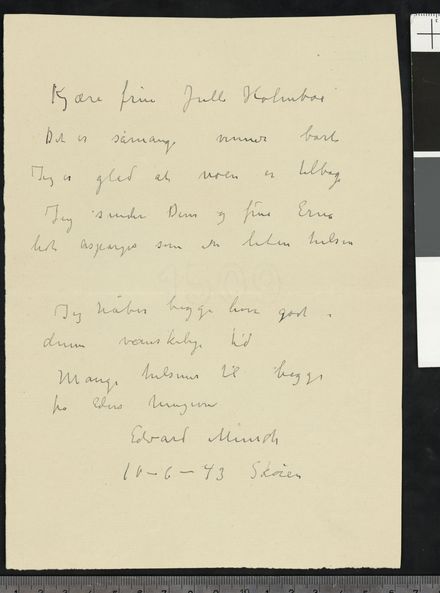 Kjære frue Jull Holmboe
Det er såmange venner bort
Jeg er glad at noen er tilbage
Jeg sender Dem og frue Erna
lidt asparges som en liten hilsen
Jeg håber begge have godt i
denne vanskelige tid
Mange hilsener til begge
fra Eders hengivne
Edvard Munch
10-6-43 Skøien